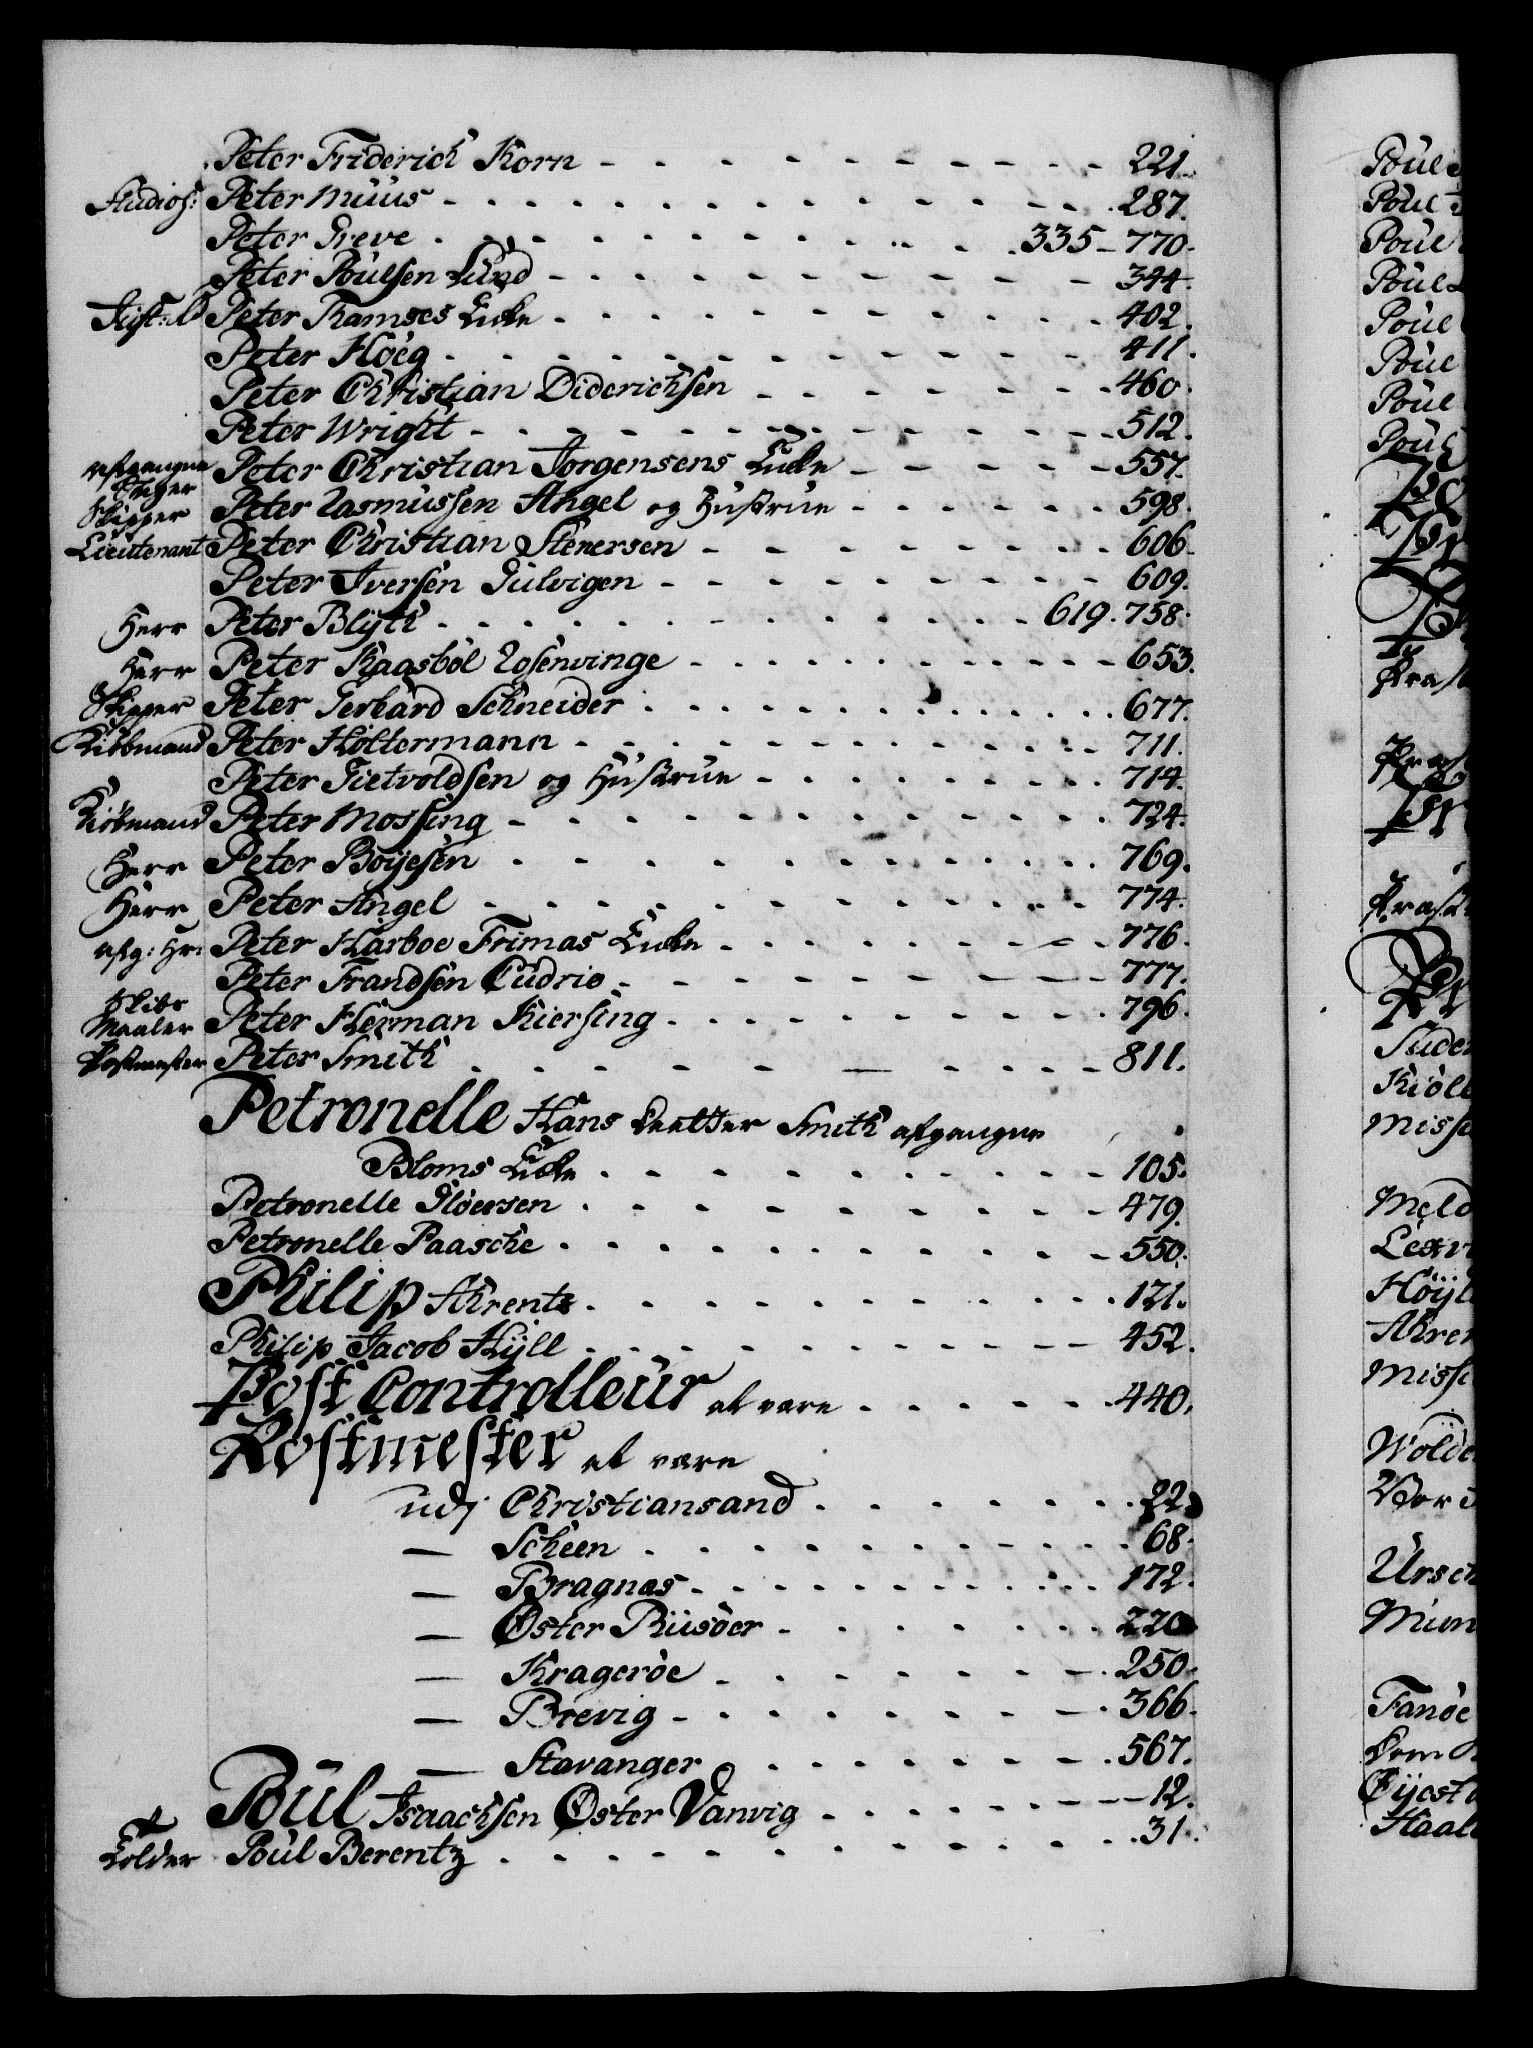 Peter Friderich Korn - - - - - - - - - - 221.
Studios: Peter Muus - - - - - - - - - - 287.
Peter Greve - - - - - - - - 335 - 770.
Peter Poulsen Lund - - - - - - - - - - 344.
Peter Ramses Enke - - - - - - - - - - 402.
Peter Höeg - - - - - - - - - - 411.
Peter Christian Diderichsen - - - - - - 460.
Peter Wright - - - - - - - - - - 512.
afgangne
Peter Christian Jørgensens Enke - - - - - 557.
Skipper Peter Rasmussen Angel og Hustrue - - - - - - 598.
Lieutenant Peter Christian Stenersen - - - - - - - - 606.
Peter Iversen Gulvigen - - - - - - - - 609.
Herr Peter Blÿth - - - - - - - - - - 619. 758.
Herr Peter Kaasböl Rosenvinge - - - - - - - - - 653.
Skipper Peter Gerhard Schneider - - - - - - - - - - 677.
Kiöbmand Peter Höltermann - - - - - - - - - - 711.
Peter Tietvoldsen og Hustrue - - - - - - - 714.
Kiöbmand Peter Mossing - - - - - - - - - - 724.
Herr Peter Boijesen - - - - - - - - - - 769.
Herr Peter Angel - - - - - - - - - - 774.
afg: Hr: Peter Harboe Frimas Enke - - - - - - - - 776.
Peter Frandsen Cudrio - - - - - - - - 777.
Skibs
Maaler Peter Herman Kiersing - - - - - - - - - 796.
Postmester Peter Smith - - - - - - - - - 811.
Petronelle Hans Daatter Smith afgangne
Bloms Enke - - - - - - - - - - 105.
Petronelle Glöersen - - - - - - - - - - 479.
Petronelle Paasche - - - - - - - - - - 550.
Philip Ahrentz - - - - - - - - - - 121.
Philip Jacob Hÿll - - - - - - - - - - 452.
Post Controlleur at være - - - - - - 440.
Postmester at være
udj Christiansand - - - - - - - 22.
— Scheen - - - - - - - - - - 68.
— Bragnæs - - - - - - - - - - 172.
— Øster Riisöer - - - - - - - 220.
— Kragerøe - - - - - - - 250.
— Brevig - - - - - - - - 366.
— Stavanger - - - - - - - 567.
Poul Isaachsen Øster Vanvig - - - - - - - 12.
Poul Berentz - - - - - - - - - - 31.
Poul
Poul
Poul
Poul
Poul
Poul
Poul
Poul
Kiöll
Misse
Meld
Höÿl
Ahren
Misse
Wolde
Fanöe